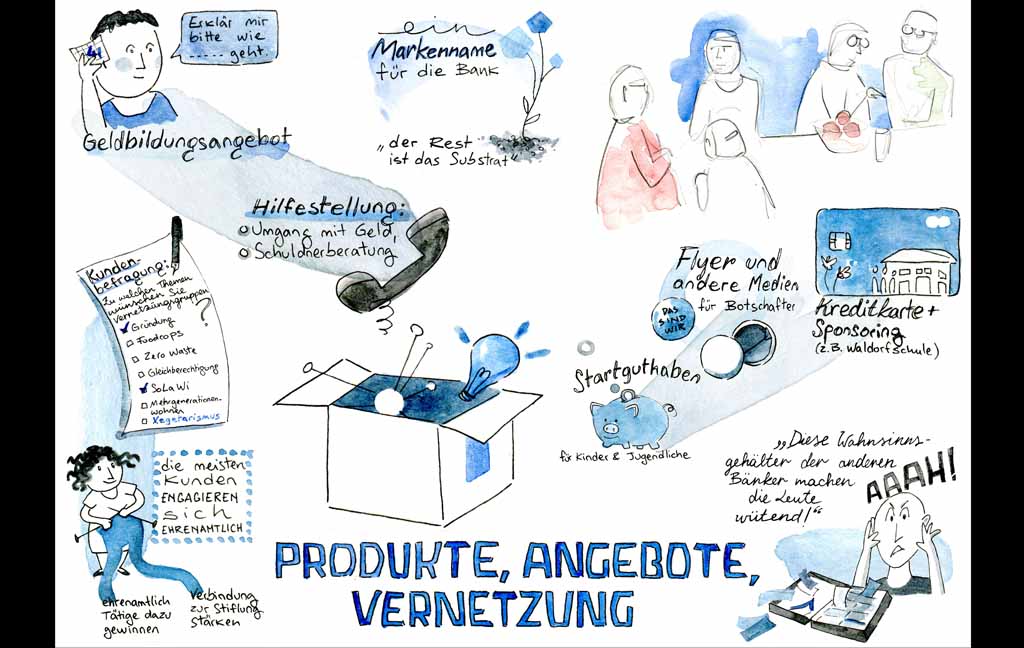 Erklär mir
bitte wie
..... geht.
Geldbildungsangebot
ein
Markenname
für die Bank
„der Rest
ist das Substrat“
Hilfestellung:
Umgang mit Geld,
Schuldnerberatung
Kunden-
befragung:
Zu welchen Themen
wünschen Sie
Vernetzungsgruppen
?
Gründung
Foodcops
Zero Waste
Gleichberechtigung
SoLaWi
Mehrgenerationen-
wohnen
Vegetarismus
die meisten
Kunden
ENGAGIEREN
sich
EHRENAMTLICH
ehrenamtlich
Tätige dazu
gewinnen
Verbindung
zur Stiftung
stärken
Flyer und
andere Medien
für Botschafter
DAS
SIND
WIR
Startguthaben
für Kinder & Jugendliche
Kreditkarte +
Sponsoring
(z.B. Waldorfschule)
„Diese Wahnsinns-
gehälter der anderen
Bänker machen
die Leute
wütend!“
AAAH!
PRODUKTE, ANGEBOTE,
VERNETZUNG